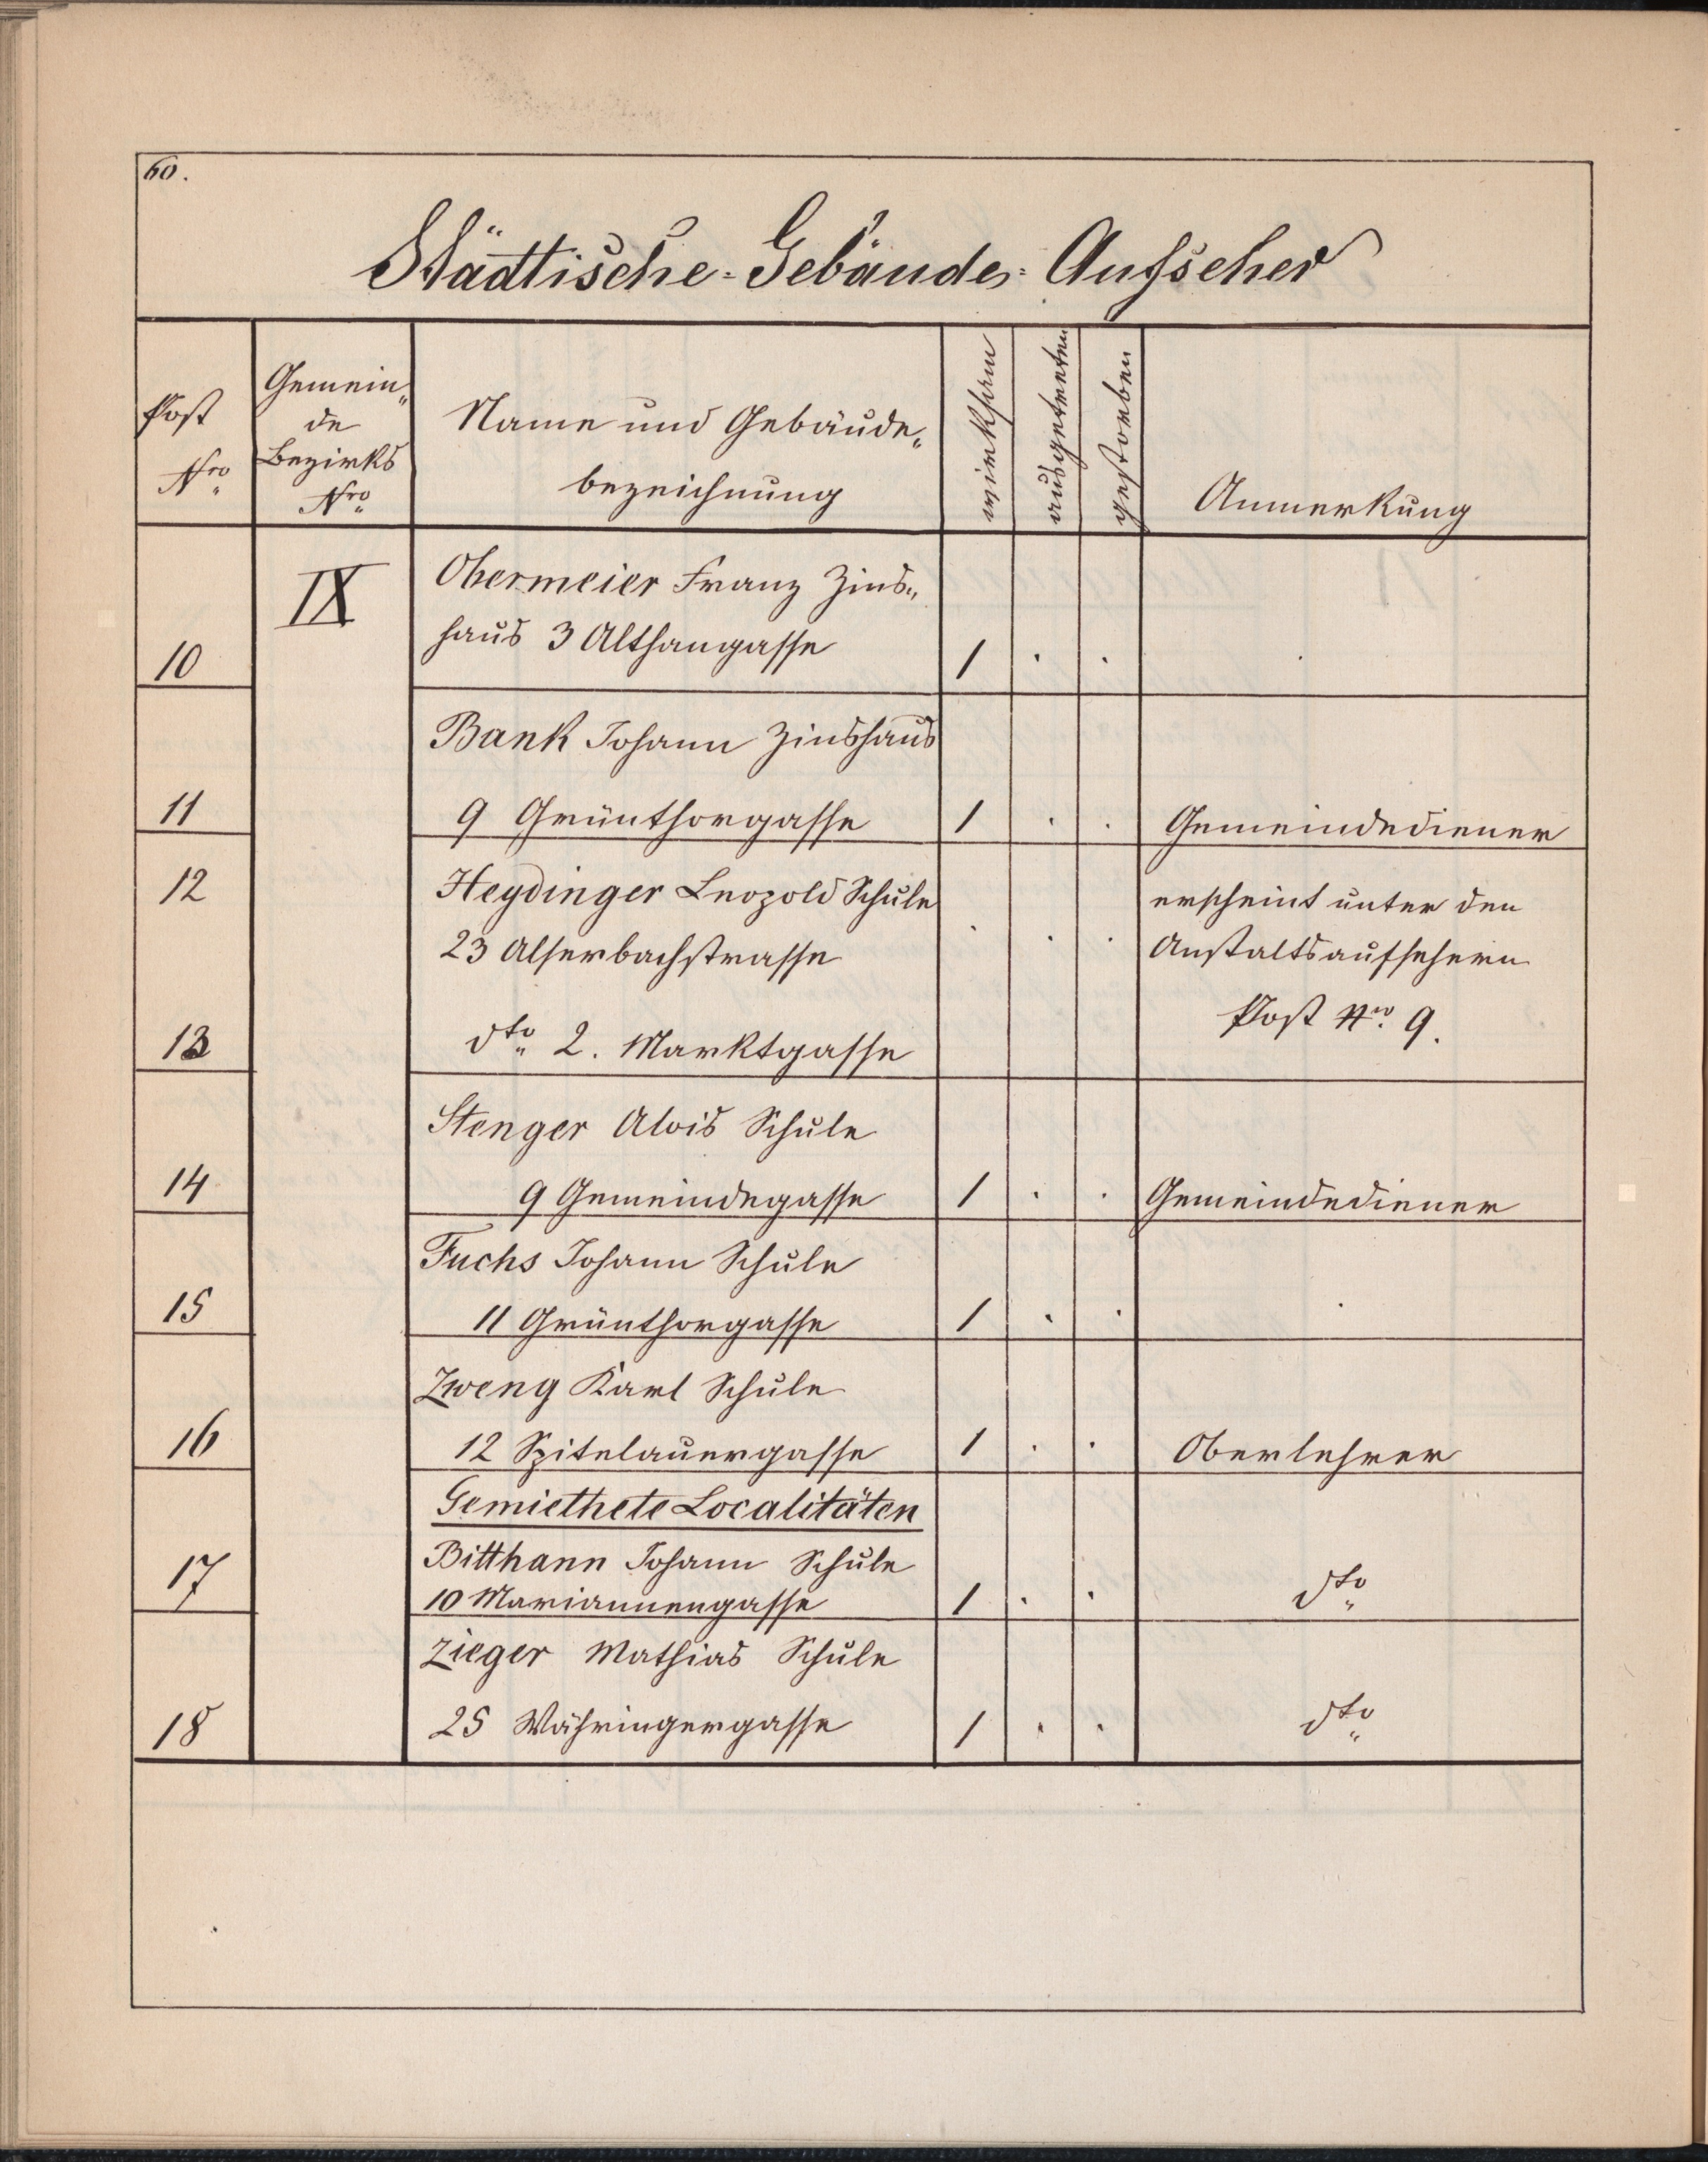 60.
Städtische-Gebäude-Aufseher
Post Nro
Gemein„
de
Bezirks
Nro
Name und Gebäude„
bezeichnung
wirksam
ausgetreten
gestorben
Anmerkung
IX
Obermeier Franz Zins„
10 haus 3 Althangasse 1 . . .
Bank Johann Zinshaus
11 9 Grünthorgasse 1 . . Gemeindediener
12 Heydinger Leopold Schule erscheint unter den
23 Alserbachstrasse . . . Anstaltsaufsehern
Post Nro. 9.
13 dto 2. Marktgasse
Stenger Alois Schule
14 9 Gemeindegasse 1 . . Gemeindediener
Fuchs Johann Schule
15 11 Grünthorgasse 1 . . .
Zweng Karl Schule
16 12 Spitelauergasse 1 . . Oberlehrer
Gemiethete Localitäten
17 Bitthann Johann Schule
10 Mariannengasse 1 . . dto
Zieger Mathias Schule
18 25 Währingergasse 1 . . dto